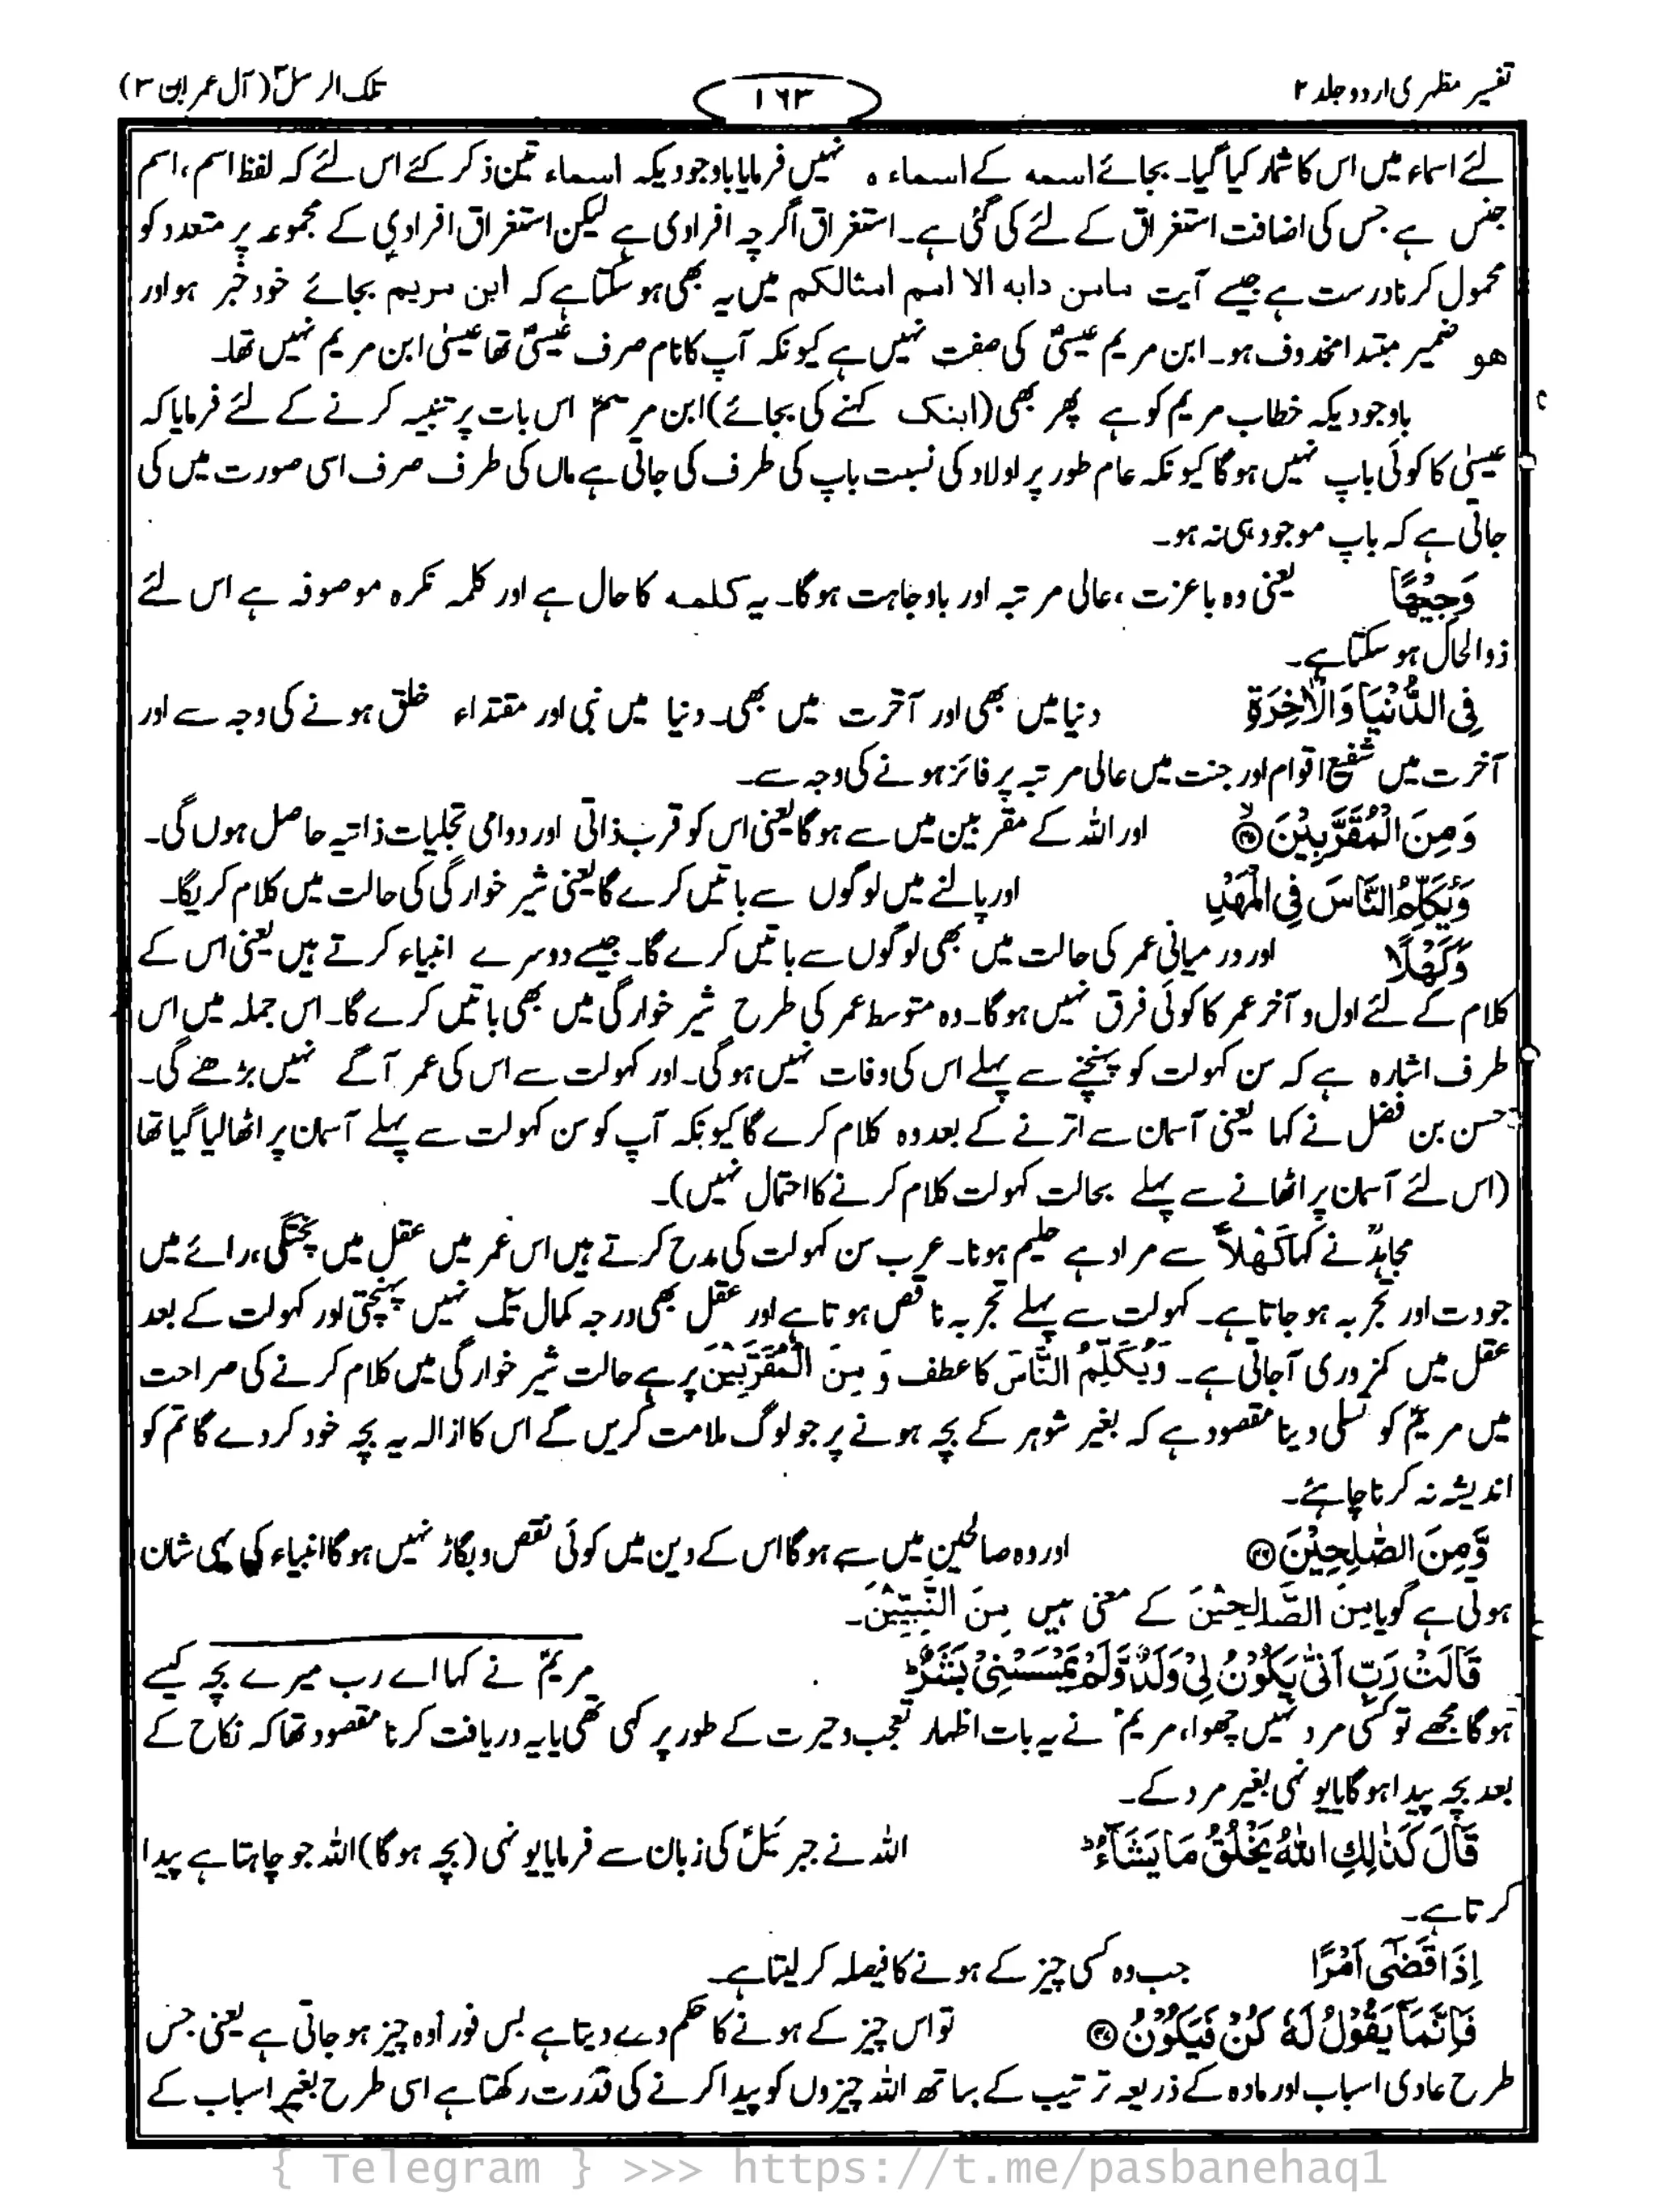 تفسیر مظہری اردو جلد ۲
۱۶۳
تلک الرسل ۳ (آل عمران ۳)
لئے اسماء میں اس کا شمار کیا گیا۔ بجائے اسمہ کے اسماء ہ نہیں فرمایا باوجودیکہ اسماء تین ذکر کئے اس لئے کہ لفظ اسم، اسم
جنس ہے جس کی اضافت استغراق کے لئے کی گئی ہے۔ استغراق اگرچہ افرادی ہے لیکن استغراق افرادی کے مجموعہ پر متعدد کو
محمول کرنا درست ہے جیسے آیت مامن دابہ الا امم امثالکم میں یہ بھی ہو سکتا ہے کہ ابن مریم بجائے خود خبر ہو اور
ھو ضمیر مبتدا محذوف ہو۔ ابن مریم عیسیٰؑ کی صفت نہیں ہے کیونکہ آپ کا نام صرف عیسیٰؑ تھا عیسیٰ ابن مریم نہیں تھا۔
باوجودیکہ خطاب مریم کو ہے پھر بھی (ابنک کہنے کی بجائے) ابن مریمؑ اس بات پر تنبیہ کرنے کے لئے فرمایا کہ
عیسیٰ کا کوئی باپ نہیں ہوگا کیونکہ عام طور پر اولاد کی نسبت باپ کی طرف کی جاتی ہے ماں کی طرف صرف اسی صورت میں کی
جاتی ہے کہ باپ موجود ہی نہ ہو۔
وَجِيْهًا یعنی وہ باعزت، عالی مرتبہ اور باوجاہت ہوگا۔ یہ کلمہ کا حال ہے اور کلمہ نکرہ موصوفہ ہے اس لئے
ذوالحال ہو سکتا ہے۔
فِي الدُّنْيَا وَالْاٰخِرَةِ دنیا میں بھی اور آخرت میں بھی۔ دنیا میں نبی اور مقتداء خلق ہونے کی وجہ سے اور
آخرت میں شفیع اقوام اور جنت میں عالی مرتبہ پر فائز ہونے کی وجہ سے۔
وَمِنَ الْمُقَرَّبِيْنَ ۙ۝ اور اللہ کے مقربین میں سے ہوگا یعنی اس کو قرب ذاتی اور دوامی تجلیات ذاتیہ حاصل ہوں گی۔
وَيُكَلِّمُ النَّاسَ فِي الْمَهْدِ اور پالنے میں لوگوں سے باتیں کرے گا یعنی شیر خوارگی کی حالت میں کلام کریگا۔
وَكَهْلًا اور درمیانی عمر کی حالت میں بھی لوگوں سے باتیں کرے گا۔ جیسے دوسرے انبیاء کرتے ہیں یعنی اس کے
کلام کے لئے اول و آخر عمر کا کوئی فرق نہیں ہوگا۔ وہ متوسط عمر کی طرح شیر خوارگی میں بھی باتیں کرے گا۔ اس جملہ میں اس
طرف اشارہ ہے کہ سن کہولت کو پہنچنے سے پہلے اس کی وفات نہیں ہوگی۔ اور کہولت سے اس کی عمر آگے نہیں بڑھے گی۔
حسن بن فضل نے کہا یعنی آسمان سے اترنے کے بعد وہ کلام کرے گا کیونکہ آپ کو سن کہولت سے پہلے آسمان پر اٹھا لیا گیا تھا
(اس لئے آسمان پر اٹھانے سے پہلے بحالت کہولت کلام کرنے کا احتمال نہیں)۔
مجاہدؒ نے کہا کَهْلاً سے مراد ہے حلیم ہونا۔ عرب سن کہولت کی مدح کرتے ہیں اس عمر میں عقل میں پختگی، رائے میں
جودت اور تجربہ ہو جاتا ہے۔ کہولت سے پہلے تجربہ ناقص ہوتا ہے اور عقل بھی درجہ کمال تک نہیں پہنچتی اور کہولت کے بعد
عقل میں کمزوری آجاتی ہے۔ وَيُكَلِّمُ النَّاسَ کا عطف وَ مِنَ الْمُقَرَّبِيْنَ پر ہے حالت شیر خوارگی میں کلام کرنے کی صراحت
میں مریمؑ کو تسلی دینا مقصود ہے کہ بغیر شوہر کے بچہ ہونے پر جو لوگ ملامت کریں گے اس کا ازالہ یہ بچہ خود کردے گا تم کو
اندیشہ نہ کرنا چاہئے۔
وَّمِنَ الصّٰلِحِيْنَ ۝ اور وہ صالحین میں سے ہوگا اس کے دین میں کوئی نقص و بگاڑ نہیں ہوگا انبیاء کی یہی شان
ہوتی ہے گویا مِنَ الصَّالِحِيْنَ کے معنی ہیں مِنَ النَّبِيِّيْنَ۔
قَالَتْ رَبِّ اَنّٰى يَكُوْنُ لِيْ وَلَدٌ وَّلَمْ يَمْسَسْنِيْ بَشَرٌ ؕ مریمؑ نے کہا اے رب میرے بچہ کیسے
ہوگا مجھے تو کسی مرد نہیں چھوا، مریمؑ نے یہ بات اظہار تعجب و حیرت کے طور پر کہی تھی یا یہ دریافت کرنا مقصود تھا کہ نکاح کے
بعد بچہ پیدا ہوگا یا یونہی بغیر مرد کے۔
قَالَ كَذٰلِكِ اللّٰهُ يَخْلُقُ مَا يَشَآءُ ؕ اللہ نے جبرئیلؑ کی زبان سے فرمایا یونہی (بچہ ہوگا) اللہ جو چاہتا ہے پیدا
کرتا ہے۔
اِذَا قَضٰٓى اَمْرًا جب وہ کسی چیز کے ہونے کا فیصلہ کر لیتا ہے۔
فَاِنَّمَا يَقُوْلُ لَهٗ كُنْ فَيَكُوْنُ ۝ تو اس چیز کے ہونے کا حکم دے دیتا ہے بس فوراً وہ چیز ہو جاتی ہے یعنی جس
طرح عادی اسباب اور مادہ کے ذریعہ ترتیب کے ساتھ اللہ چیزوں کو پیدا کرنے کی قدرت رکھتا ہے اسی طرح بغیر اسباب کے
{ Telegram } >>> https://t.me/pasbanehaq1